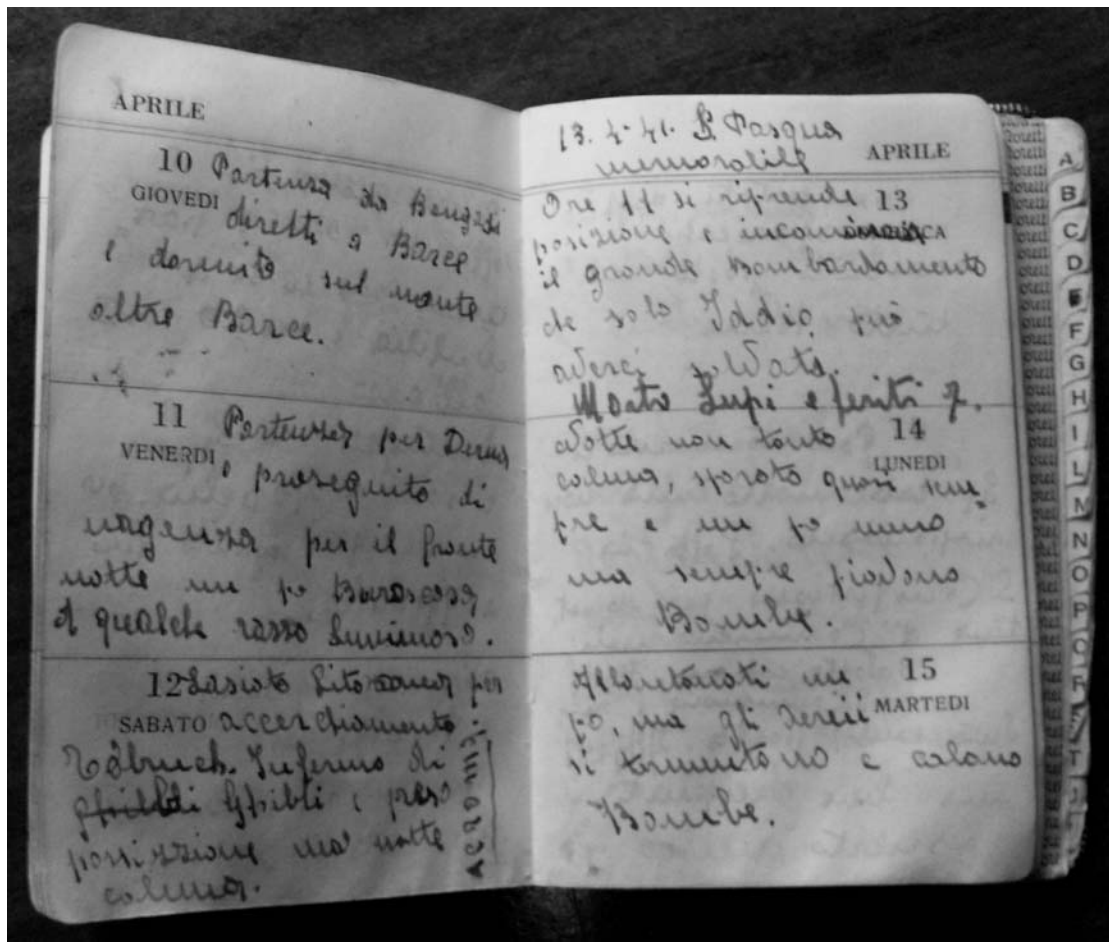 APRILE
10 Partenza da Bengasi
GIOVEDI diretti a Barce
e dormito sul monte
oltre Barce.
11 Partenza per Derna
VENERDI e proseguito di
urgenza per il fronte
notte un po Burascosa
di qualche razzo luminoso.
12 Lasiato Litoranea per
SABATO accerchiamento
Tobruch. Inferno di
ghibldi Ghibli e preso
possizzione ma notte
calma.
Acroma
13. 4. 41. S. Pasqua
memorabile APRILE
Ore 11 si riprende 13
posizione e incomincia DOMENICA
il grande Bombardamento
che solo Iddio può
averci salvati.
Morto Lupi e feriti 7.
Notte non tanto 14
calma, sparato quasi sem- LUNEDI
pre e un po meno
ma sempre piovono
Bombe.
Allontanati un 15
po, ma gli aerei MARTEDI
si tormentono e calano
Bombe.
A
B
C
D
E
F
G
H
I
L
M
N
O
P
Q
R
T